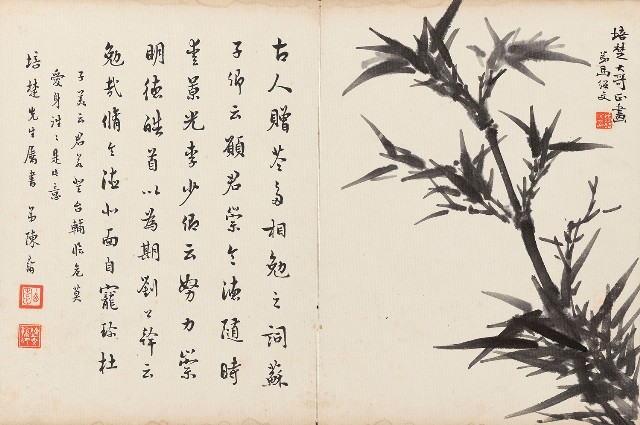 培楚大哥正畫
弟馬紹文
古人贈答多相勉之詞蘇
子卿云願君崇令德隨時
愛景光李少卿云努力崇
明德皓首以為期劉公幹云
勉哉脩令德北面自寵珍杜
子美云君若登台輔臨危莫
愛身往〻是此意
培楚先生屬書 弟陳